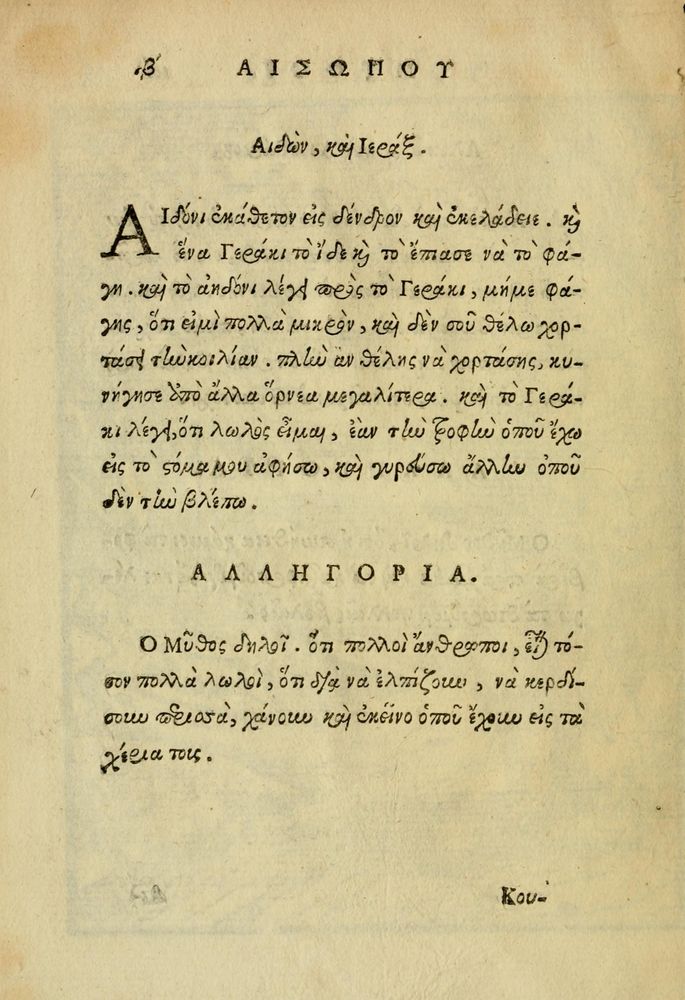 β ΑΙΣΩΠΟΥ
Αιδὼν, καὶ Ιεράξ.
ΑΙδόνι ἐκάθετον εἰς δένδρον καὶ ἐκελάδειε. κὶ
ἕνα Γεράκι τὸ ἶδε κὶ τὸ ἔπιασε νὰ τὸ φά-
γῃ. καὶ τὸ ἀηδόνι λέγει πρὸς τὸ Γεράκι, μήμε φά-
γῃς, ὅτι εἰμὶ πολλὰ μικρὸν, καὶ δὲν σοῦ θέλω χορ-
τάσει τὴν κοιλίαν. πλὴν ἂν θέλῃς νὰ χορτάσῃς, κυ-
νήγησε ἀπὸ ἄλλα ὄρνεα μεγαλίτερα. καὶ τὸ Γερά-
κι λέγει, ὅτι λωλὸς εἶμαι, ἐὰν τὴν τροφὴν ὁποῦ ἔχω
εἰς τὸ στόμα μου ἀφήσω, καὶ γυρεύσω ἄλλην ὁποῦ
δὲν τὴν βλέπω.
ΑΛΛΗΓΟΡΙΑ.
Ὁ Μῦθος δηλοῖ. ὅτι πολλοὶ ἄνθρωποι, εἶναι τό-
σον πολλὰ λωλοὶ, ὅτι διὰ νὰ ἐλπίζουν, νὰ κερδί-
σουν περισσὰ, χάνουν καὶ ἐκεῖνο ὁποῦ ἔχουν εἰς τὰ
χέρια τοις.
Κου-